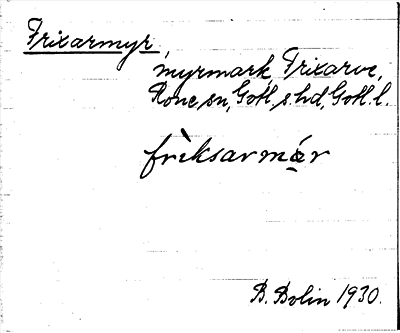 Frixarmyr,
myrmark, Frixarve,
Rone sn, Gotl. s. hd, Gotl. l.
friksarmár
B. Bolin 1930.